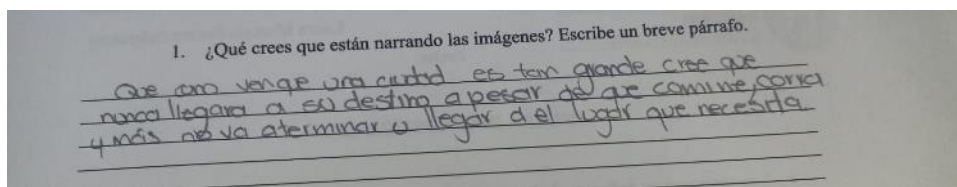 1. ¿Qué crees que están narrando las imágenes? Escribe un breve párrafo.
Que como venge una ciudad es tam grande cree que
nunca llegara a su destino apesar de que camine, corra
y más no va aterminar o llegar a el lugar que necesita